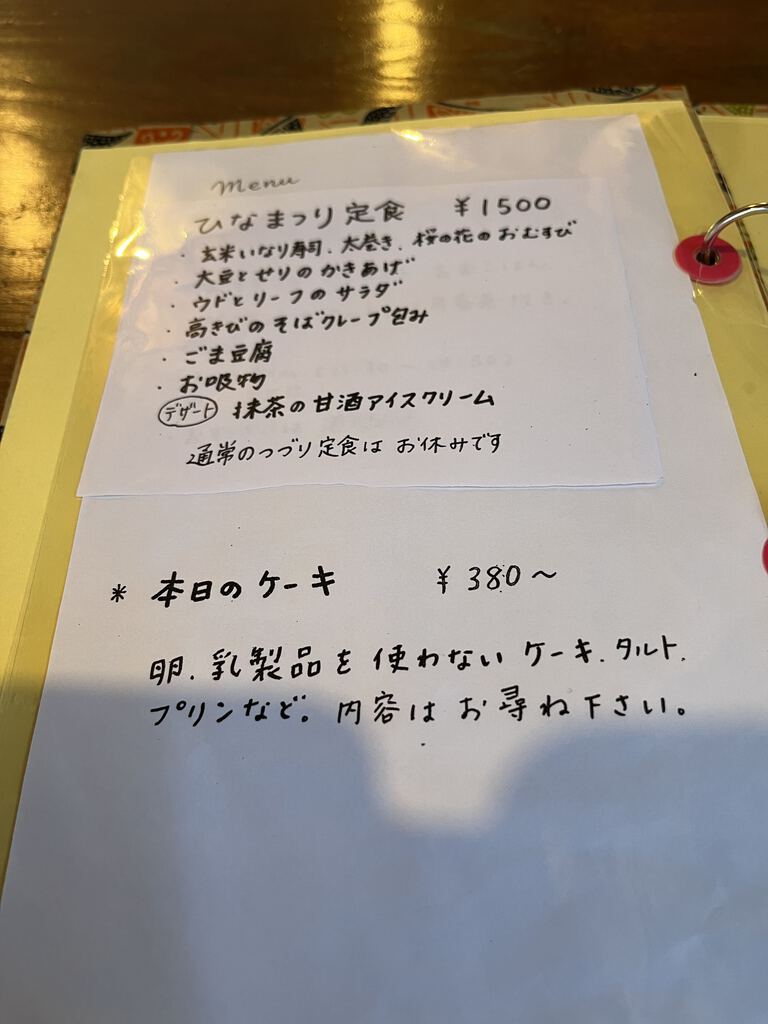 Menu
ひなまつり定食 ¥1500
・玄米いなり寿司、太巻き、桜の花のおむすび
・大豆とせりのかきあげ
・ウドとリーフのサラダ
・高きびのそばクレープ包み
・ごま豆腐
・お吸物
デザート 抹茶の甘酒アイスクリーム
通常のつづり定食はお休みです
* 本日のケーキ ¥380〜
卵、乳製品を使わないケーキ、タルト、
プリンなど。内容はお尋ね下さい。